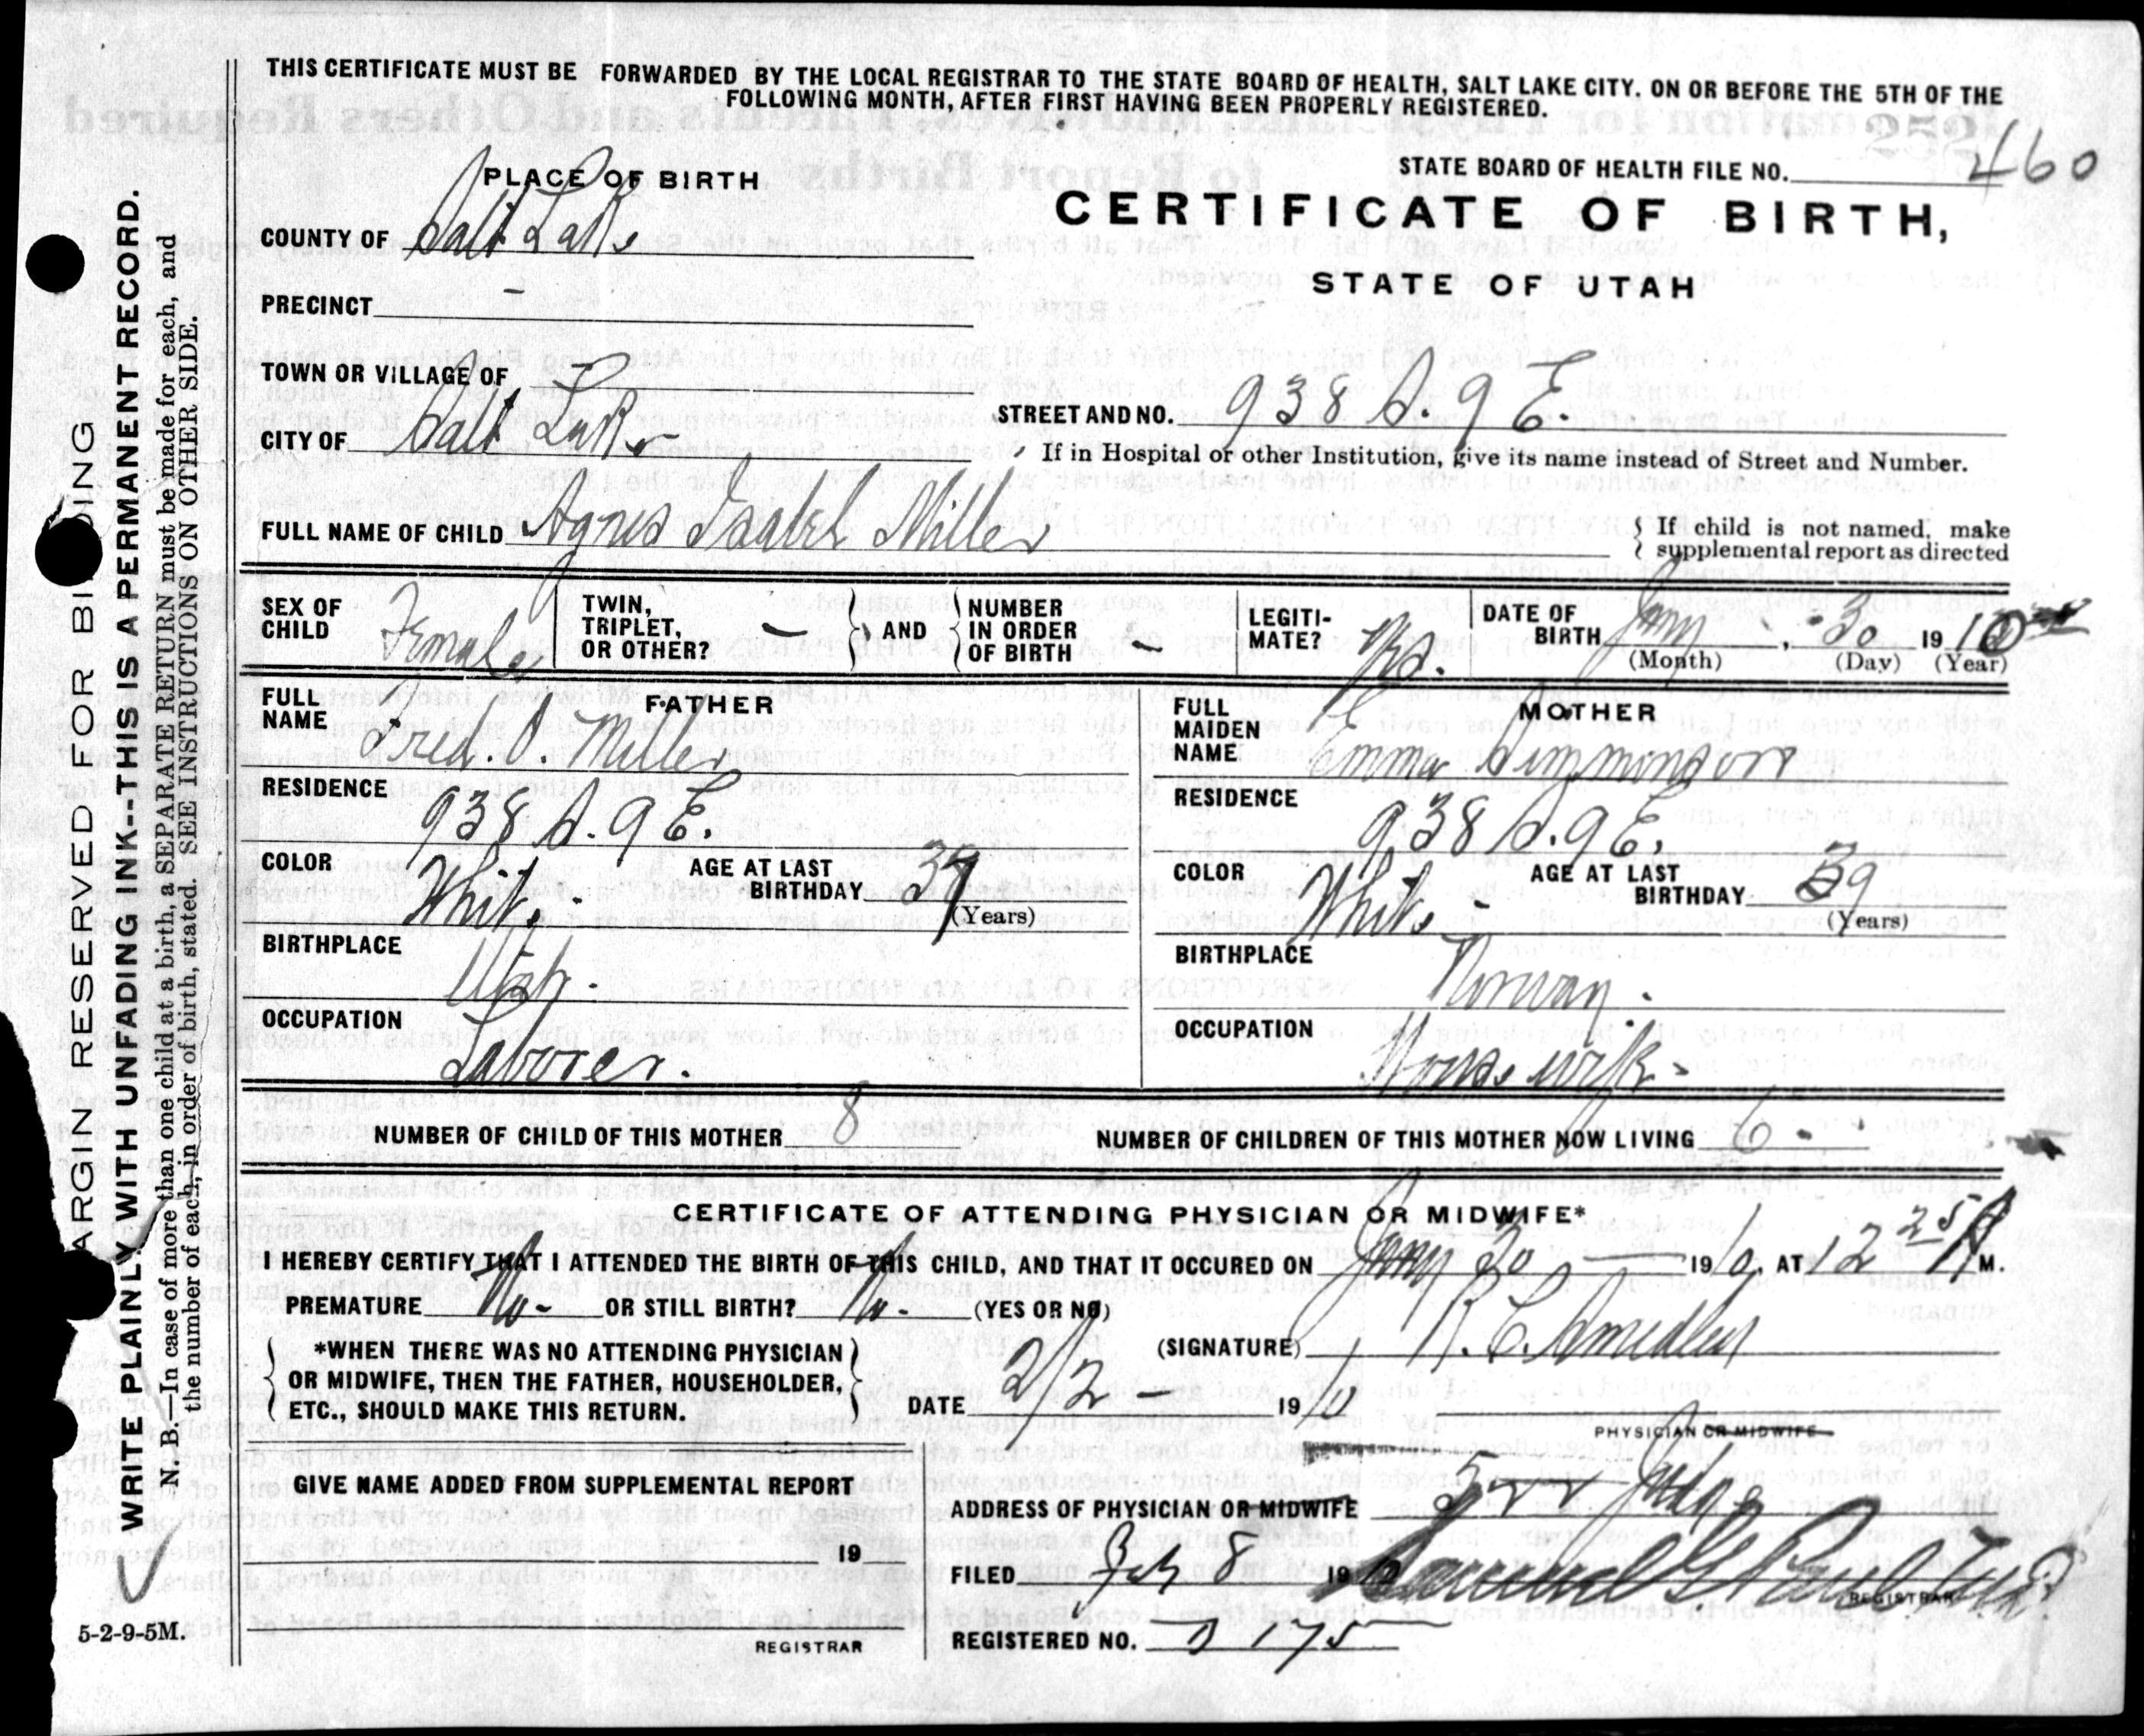 THIS CERTIFICATE MUST BE FORWARDED BY THE LOCAL REGISTRAR TO THE STATE BOARD OF HEALTH, SALT LAKE CITY, ON OR BEFORE THE 5TH OF THE
FOLLOWING MONTH, AFTER FIRST HAVING BEEN PROPERLY REGISTERED.
STATE BOARD OF HEALTH FILE NO. 460
PLACE OF BIRTH
CERTIFICATE OF BIRTH,
STATE OF UTAH
COUNTY OF Salt Lake
PRECINCT -
TOWN OR VILLAGE OF
STREET AND NO. 938 S. 9 E.
CITY OF Salt Lake
If in Hospital or other Institution, give its name instead of Street and Number.
FULL NAME OF CHILD Agnes Isabel Miller
If child is not named, make
supplemental report as directed
SEX OF CHILD Female
TWIN, TRIPLET, OR OTHER? -
AND
NUMBER IN ORDER OF BIRTH -
LEGITIMATE? Yes.
DATE OF BIRTH Jany 30 1910
(Month) (Day) (Year)
FATHER
FULL NAME Fred. S. Miller
RESIDENCE 938 S. 9 E.
COLOR White.
AGE AT LAST BIRTHDAY
(Years)
BIRTHPLACE Utah.
OCCUPATION Laborer.
MOTHER
FULL MAIDEN NAME Emma Simmonson
RESIDENCE 938 S. 9 E.
COLOR White -
AGE AT LAST BIRTHDAY 39
(Years)
BIRTHPLACE Norway.
OCCUPATION Housewife -
NUMBER OF CHILD OF THIS MOTHER 8
NUMBER OF CHILDREN OF THIS MOTHER NOW LIVING 6 -
CERTIFICATE OF ATTENDING PHYSICIAN OR MIDWIFE*
I HEREBY CERTIFY THAT I ATTENDED THE BIRTH OF THIS CHILD, AND THAT IT OCCURED ON Jany 30 1910, AT 12 25 A M.
PREMATURE No - OR STILL BIRTH? No - (YES OR NO)
*WHEN THERE WAS NO ATTENDING PHYSICIAN
OR MIDWIFE, THEN THE FATHER, HOUSEHOLDER,
ETC., SHOULD MAKE THIS RETURN.
(SIGNATURE) R. C. Smedley
DATE 2/2 - 1910
PHYSICIAN OR MIDWIFE
GIVE NAME ADDED FROM SUPPLEMENTAL REPORT
19
REGISTRAR
ADDRESS OF PHYSICIAN OR MIDWIFE 522 Judge
FILED Feb 8 1910 Samuel G. Paul
REGISTRAR
REGISTERED NO. 175
5-2-9-5M.
MARGIN RESERVED FOR BINDING
WRITE PLAINLY WITH UNFADING INK--THIS IS A PERMANENT RECORD.
N. B.—In case of more than one child at a birth, a SEPARATE RETURN must be made for each, and
the number of each, in order of birth, stated. SEE INSTRUCTIONS ON OTHER SIDE.